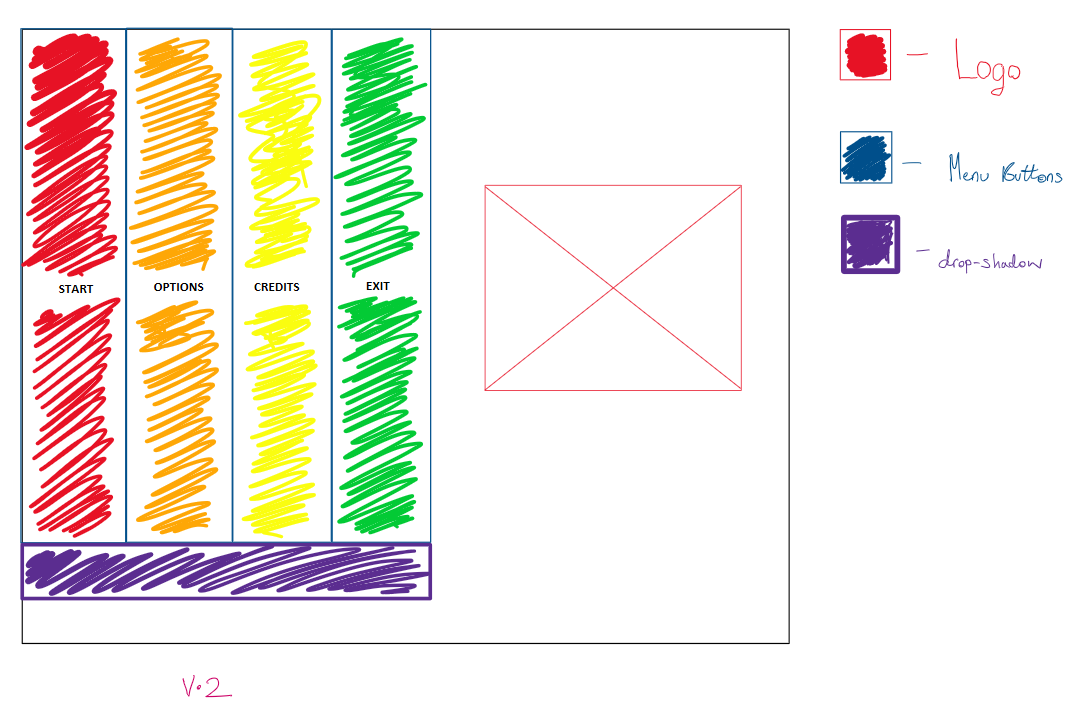 START OPTIONS CREDITS EXIT
- Logo
- Menu Buttons
- drop-shadow
V.2